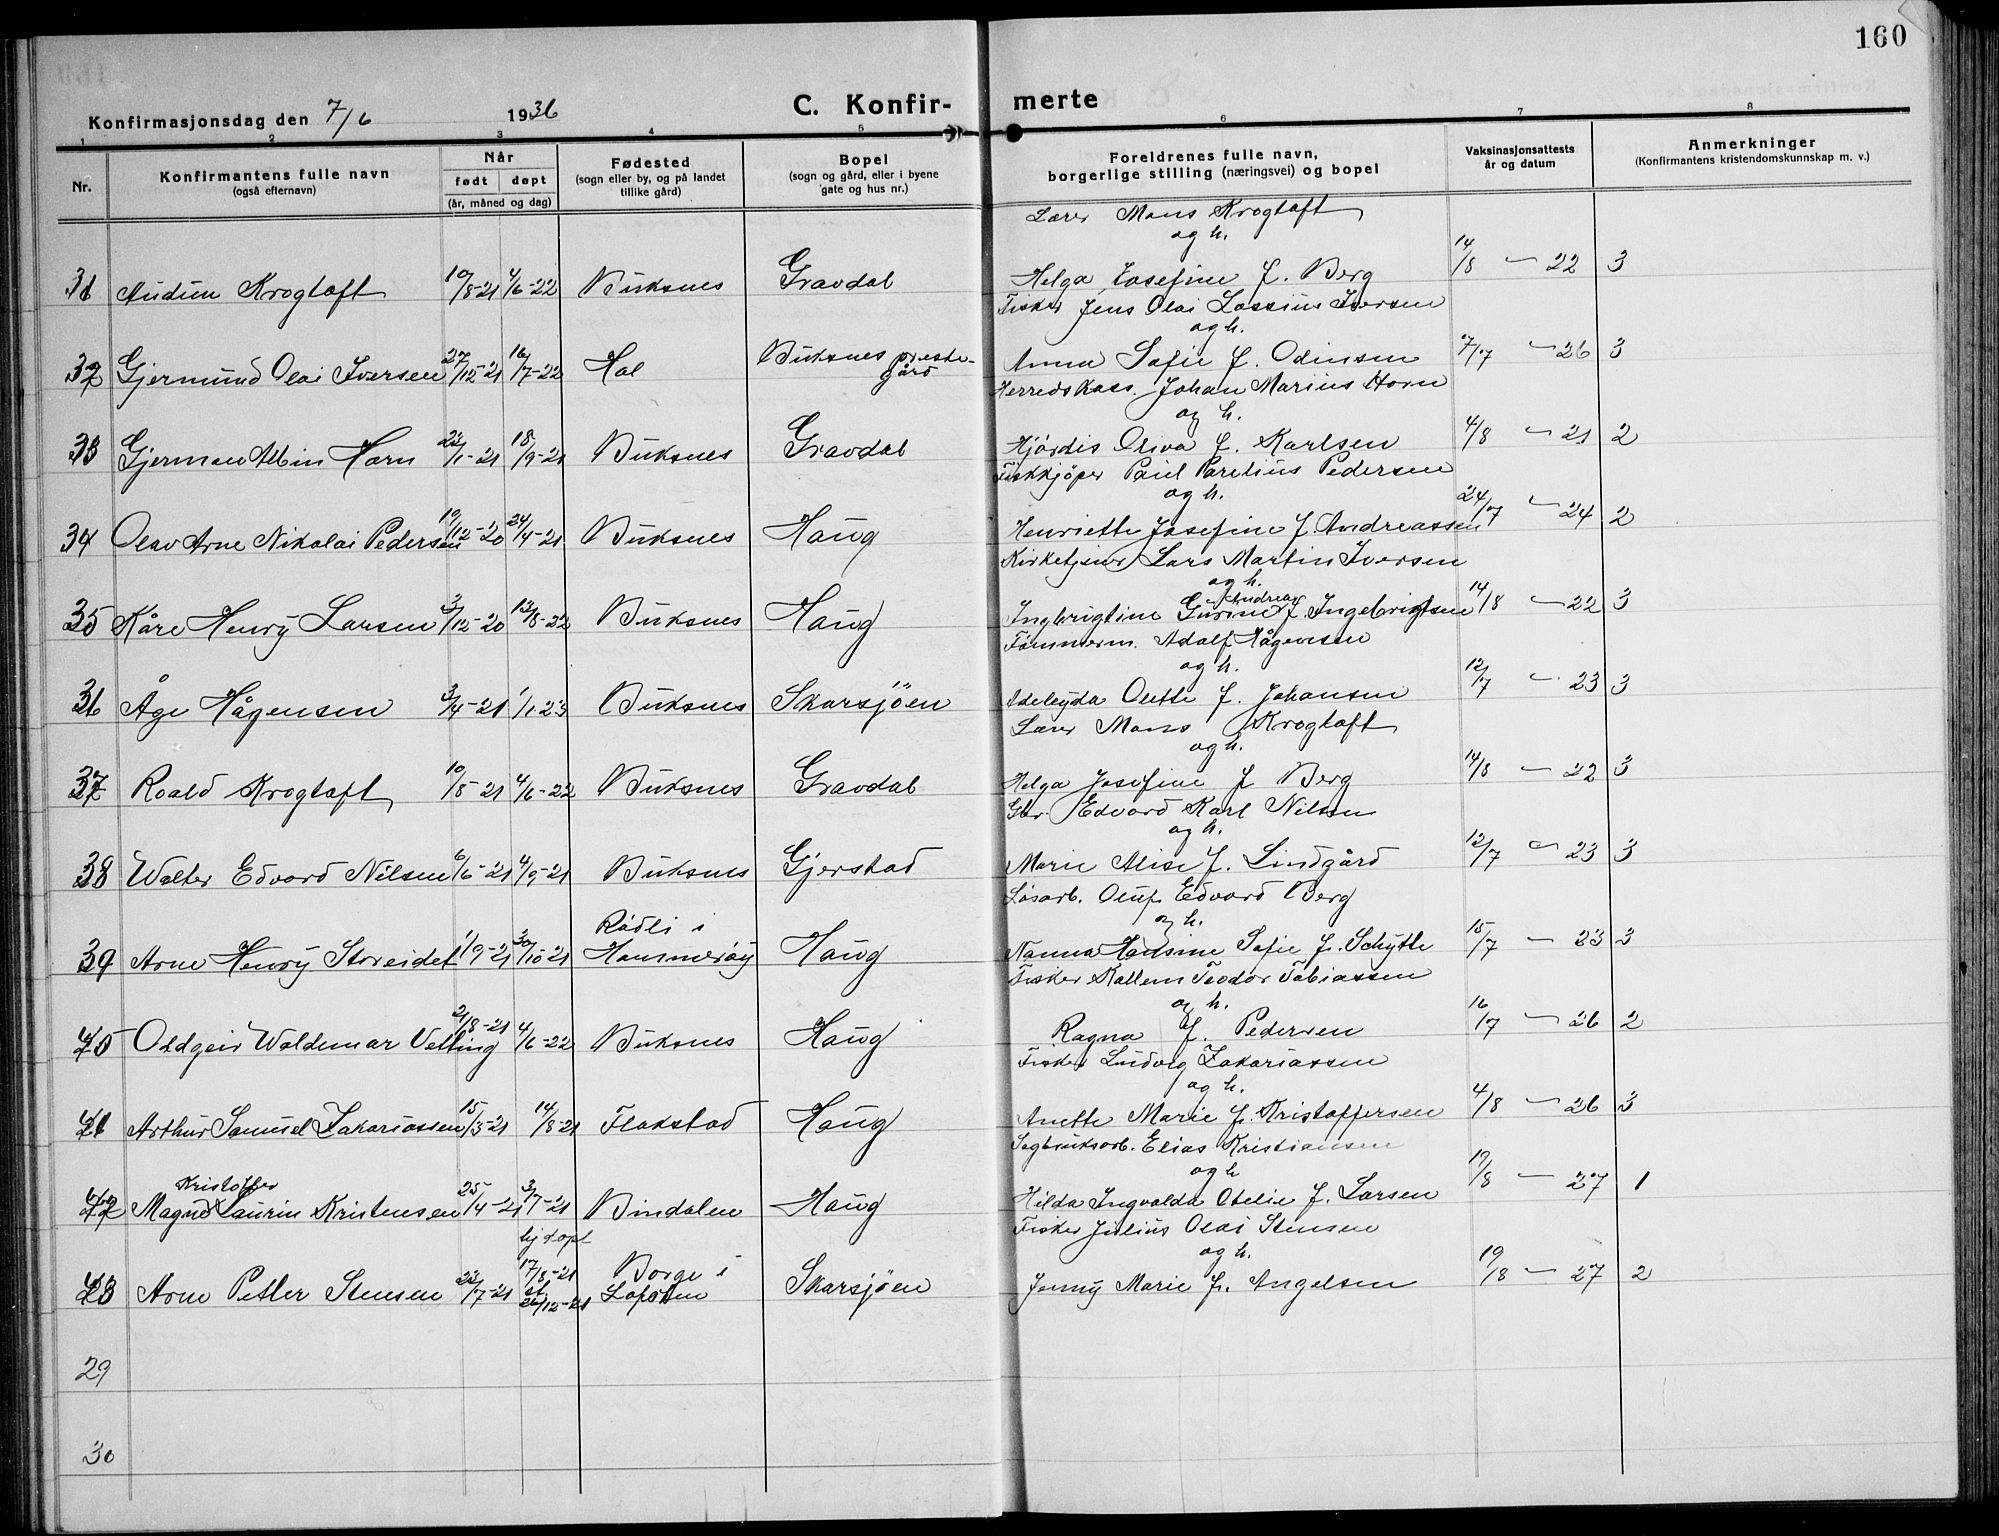 160
Konfirmasjonsdag den 7/6 1936
C. Konfir- merte
1 2 3 4 5 6 7 8
Nr.
Konfirmantens fulle navn
(også efternavn)
Når
født døpt
(år, måned og dag)
Fødested
(sogn eller by, og på landet
tillike gård)
Bopel
(sogn og gård, eller i byene
gate og hus nr.)
Foreldrenes fulle navn,
borgerlige stilling (næringsvei) og bopel
Vaksinasjonsattests
år og datum
Anmerkninger
(Konfirmantens kristendomskunnskap m. v.)
Lærer Mons Krogtoft
og h.
31 Audun Krogtoft 10/8-21 4/6-22 Buksnes Gravdal Helga Josefine f. Berg 14/8 - 22 3
Fisker Jens Olai Lassius Iversen
og h.
32 Gjermund Olai Iversen 27/12-21 16/7-22 Hol Buksnes preste-
gård Anna Sofie f. Odinsen 7/7 - 26 3
Herredskass. Johan Marius Horn
og h.
33 Gjerman Albin Horn 22/1-21 18/9-21 Buksnes Gravdal Hjördis Oliva f. Karlsen 4/8 - 21 2
Fiskkjöper Paul Parelius Pedersen
og h.
34 Olav Arne Nikolai Pedersen 19/12-20 24/4-21 Buksnes Haug Henriette Josefine f. Andreassen 24/7 - 24 2
Kirketjener Lars Martin Iversen
og h.
Andrea
35 Kåre Henry Larsen 3/12-20 13/8-22 Buksnes Haug Ingbrigtine Gurine f. Ingebrigtsen 14/8 - 22 3
Tömmerm. Adolf Hågensen
og h.
36 Åge Hågensen 3/4-21 1/1 23 Buksnes Skarsjöen Adeleyda Olette f. Johansen 12/7 - 23 3
Lærer Mons Krogtoft
og h.
37 Roald Krogtoft 10/8-21 4/6-22 Buksnes Gravdal Helga Josefine f Berg 14/8 - 22 3
Gbr. Edvard Karl Nilsen
og h.
38 Walter Edvard Nilsen 6/6-21 4/9-21 Buksnes Gjerstad Marie Alise f. Lindgård 12/7 - 23 3
Løsarb. Oluf Edvard Berg
og h.
Rådli i
39 Arne Henry Storeidet 1/9-21 30/10-21 Hammeröy Haug Nanna Hansine Sofie f. Schytte 18/7 - 23 3
Fisker Kallem Teodor Tobiassen
og h.
40 Oldgeir Waldemar Velting 21/8-21 4/6-22 Buksnes Haug Ragna f. Pedersen 16/7 - 26 2
Fisker Ludvig Zakariassen
og h.
41 Arthur Samuel Zakariassen 15/3-21 14/8-21 Flakstad Haug Anette Marie f. Kristoffersen 4/8 - 26 3
Sagbruksarb. Elias Kristiansen
og h
Kristoffer
42 Magnus Laurin Kristensen 25/4-21 3/7-21 Bindalen Haug Hilda Ingvalda Otelie f. Larsen 19/8 - 27 1
Fisker Julius Olai Stensen
og h.
hj.døpt
17/8-21
st.
26/12-21
43 Arne Petter Stensen 22/7-21 Borge i
Lofoten Skarsjöen Jenny Marie f. Angelsen 19/8 - 27 2
29
30